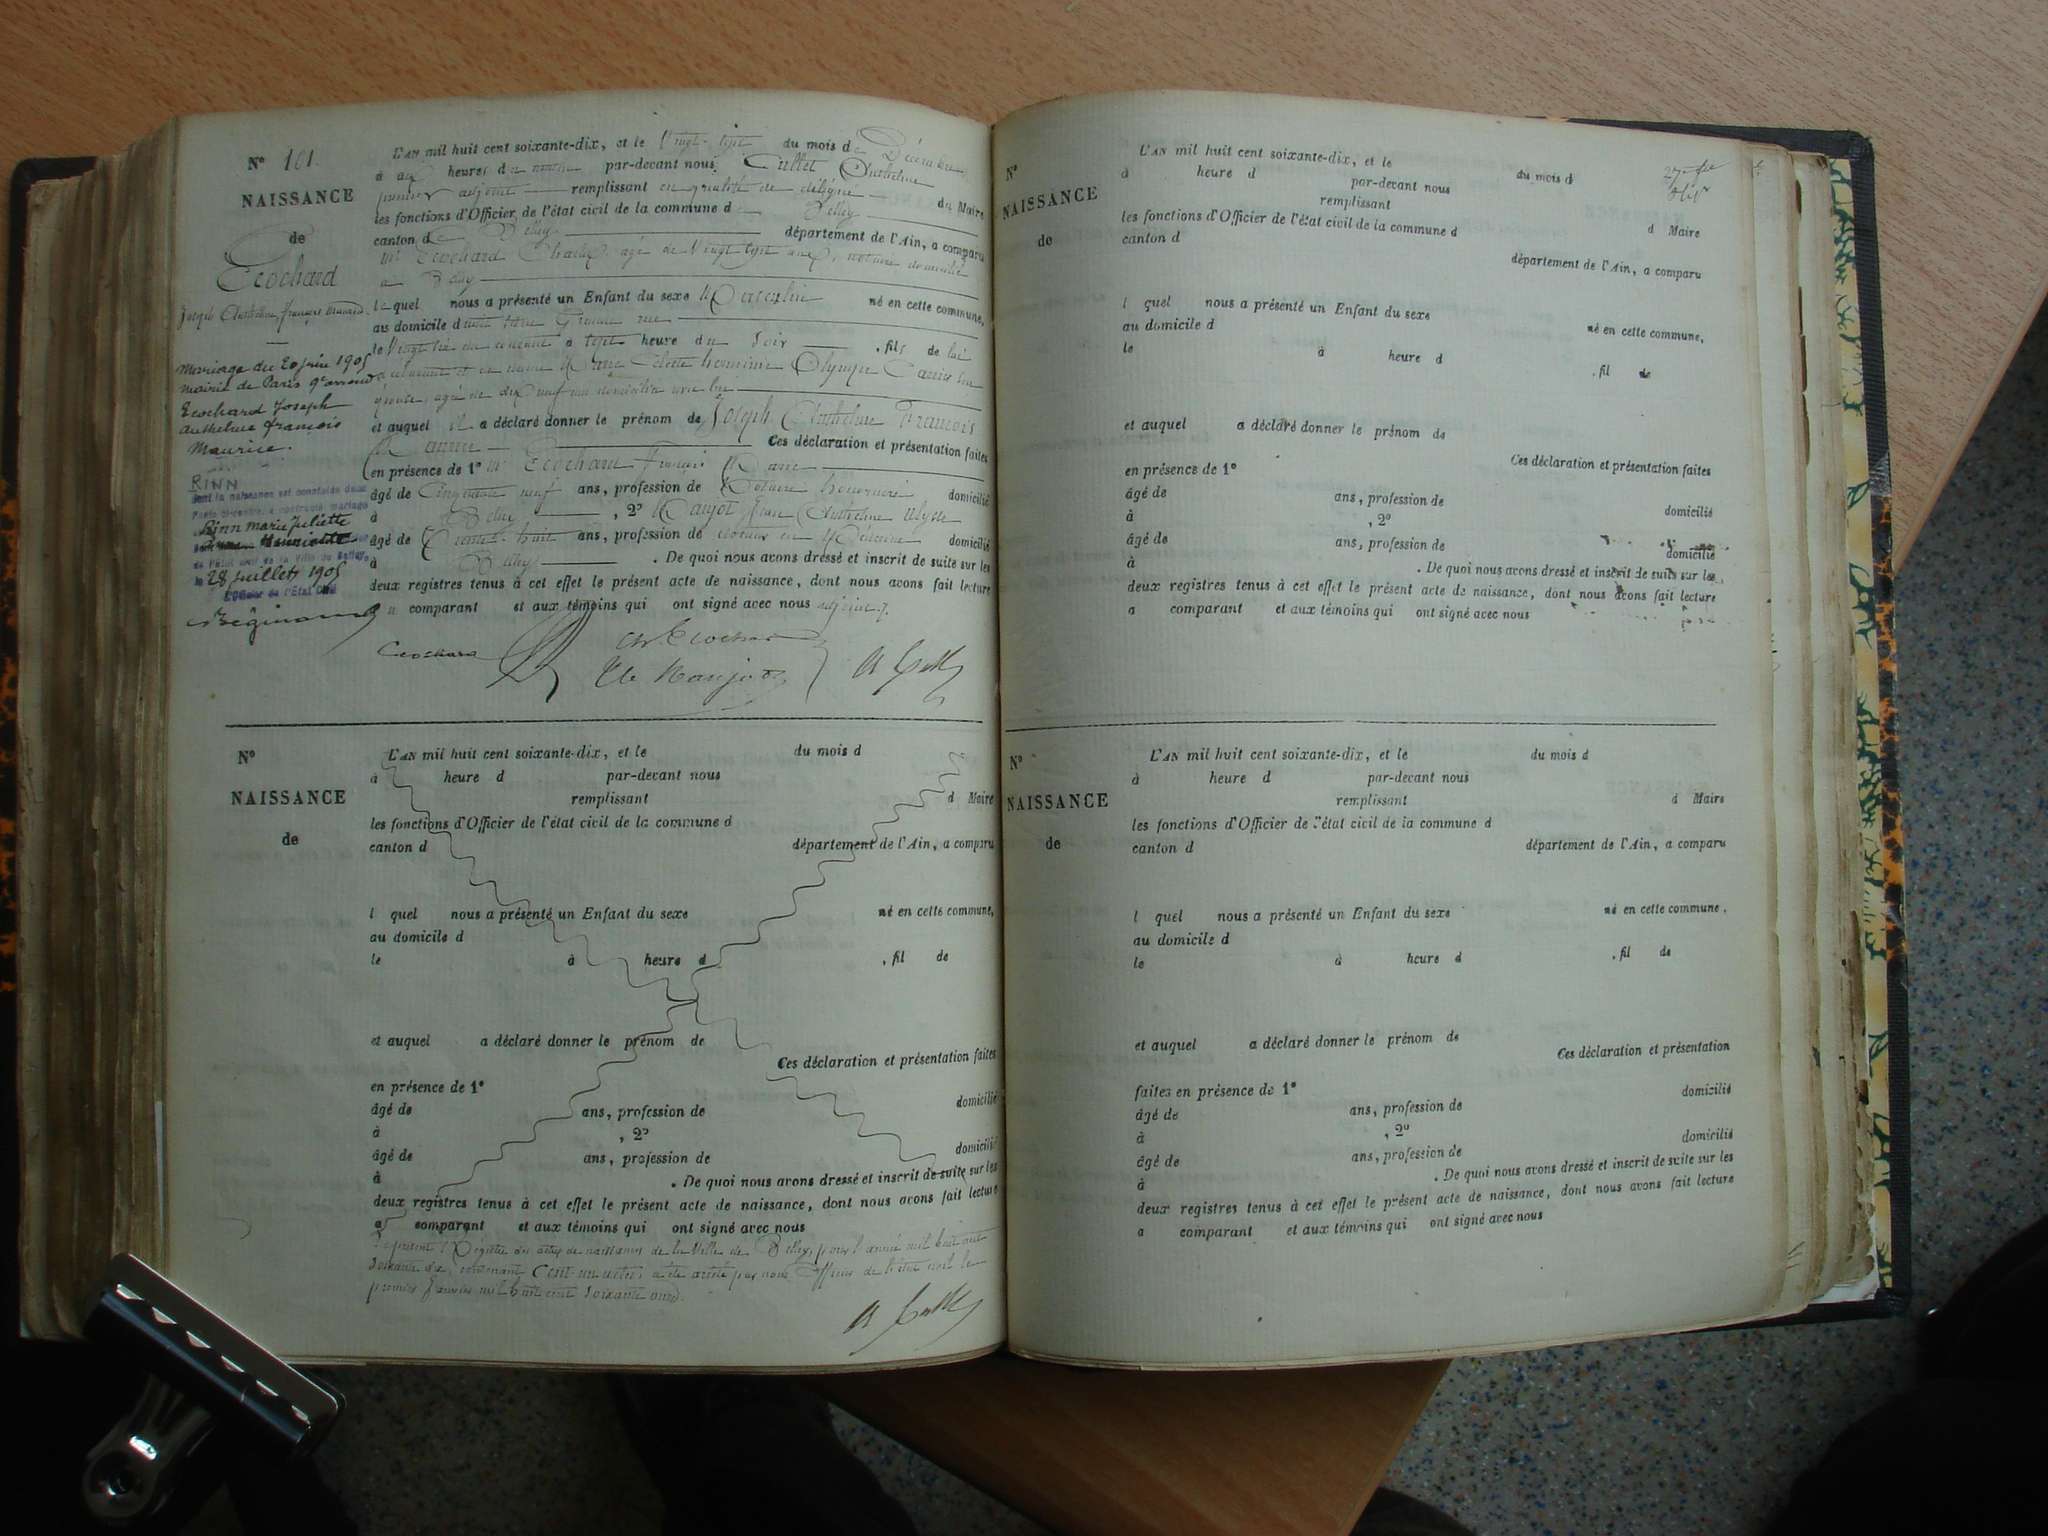 N° 101.
NAISSANCE
de
Ecochard
Joseph Anthelme François Maurice
Mariage du 20 juin 1905
mairie de Paris 9e arrond
Ecochard Joseph
Anthelme François
Maurice.
RINN
dont la naissance est constatée
a contracté mariage
Rinn Marie Juliette
Henriette
de l'état civil de la Ville de Belley
le 28 juillet 1905
L'Officier de l'Etat Civil
L'AN mil huit cent soixante-dix, et le Vingt-sept du mois de Décembre
à dix heures du matin par-devant nous Cullet Anthelme
premier adjoint remplissant en qualité de délégué du Maire
les fonctions d'Officier de l'état civil de la commune de Belley
canton de Belley département de l'Ain, a comparu
Mr Ecochard Charles, agé de Vingt sept ans, notaire domicilié
à Belley
lequel nous a présenté un Enfant du sexe Masculin né en cette commune,
au domicile d Grande rue
le Vingt six du courant à sept heure du Soir , fils de lui
comparant et de dame Marie Colette herminie Olympe son
épouse, agée de dix neuf ans domiciliée avec lui
et auquel il a déclaré donner le prénom de Joseph Anthelme François
Maurice Ces déclaration et présentation faites
en présence de 1° Mr Ecochard François Marie
âgé de Cinquante neuf ans, profession de Notaire honoraire domicilié
à Belley , 2° Maujot Jean Anthelme Ulysse
âgé de Trente huit ans, profession de docteur en Médecine domicilié
à Belley . De quoi nous avons dressé et inscrit de suite sur les
deux registres tenus à cet effet le présent acte de naissance, dont nous avons fait lecture
au comparant et aux témoins qui ont signé avec nous adjoint.
Ecochard Ch. Ecochard
N°
NAISSANCE
de
L'AN mil huit cent soixante-dix, et le du mois d
à heure d par-devant nous
remplissant d Maire
les fonctions d'Officier de l'état civil de la commune d
canton d département de l'Ain, a comparu
l quel nous a présenté un Enfant du sexe né en cette commune,
au domicile d
le à heure d , fil de
et auquel a déclaré donner le prénom de
Ces déclaration et présentation faites
en présence de 1°
âgé de ans, profession de domicilié
à , 2°
âgé de ans, profession de domicilié
à . De quoi nous avons dressé et inscrit de suite sur les
deux registres tenus à cet effet le présent acte de naissance, dont nous avons fait lecture
a comparant et aux témoins qui ont signé avec nous
Le présent Régistre des actes de naissances de la Ville de Belley, pour l'année mil huit cent
soixante dix, contenant Cent un actes, a été arrêté par nous Officier de l'état civil le
premier Janvier mil huit cent soixante onze.
N°
NAISSANCE
de
L'AN mil huit cent soixante-dix, et le du mois d
à heure d par-devant nous
remplissant d Maire
les fonctions d'Officier de l'état civil de la commune d
canton d département de l'Ain, a comparu
l quel nous a présenté un Enfant du sexe né en cette commune,
au domicile d
le à heure d , fil de
et auquel a déclaré donner le prénom de
Ces déclaration et présentation faites
en présence de 1°
âgé de ans, profession de domicilié
à , 2°
âgé de ans, profession de domicilié
à . De quoi nous avons dressé et inscrit de suite sur les
deux registres tenus à cet effet le présent acte de naissance, dont nous avons fait lecture
a comparant et aux témoins qui ont signé avec nous
N°
NAISSANCE
de
L'AN mil huit cent soixante-dix, et le du mois d
à heure d par-devant nous
remplissant d Maire
les fonctions d'Officier de l'état civil de la commune d
canton d département de l'Ain, a comparu
l quel nous a présenté un Enfant du sexe né en cette commune,
au domicile d
le à heure d , fil de
et auquel a déclaré donner le prénom de
Ces déclaration et présentation
faites en présence de 1°
âgé de ans, profession de domicilié
à , 2°
âgé de ans, profession de domicilié
à . De quoi nous avons dressé et inscrit de suite sur les
deux registres tenus à cet effet le présent acte de naissance, dont nous avons fait lecture
a comparant et aux témoins qui ont signé avec nous